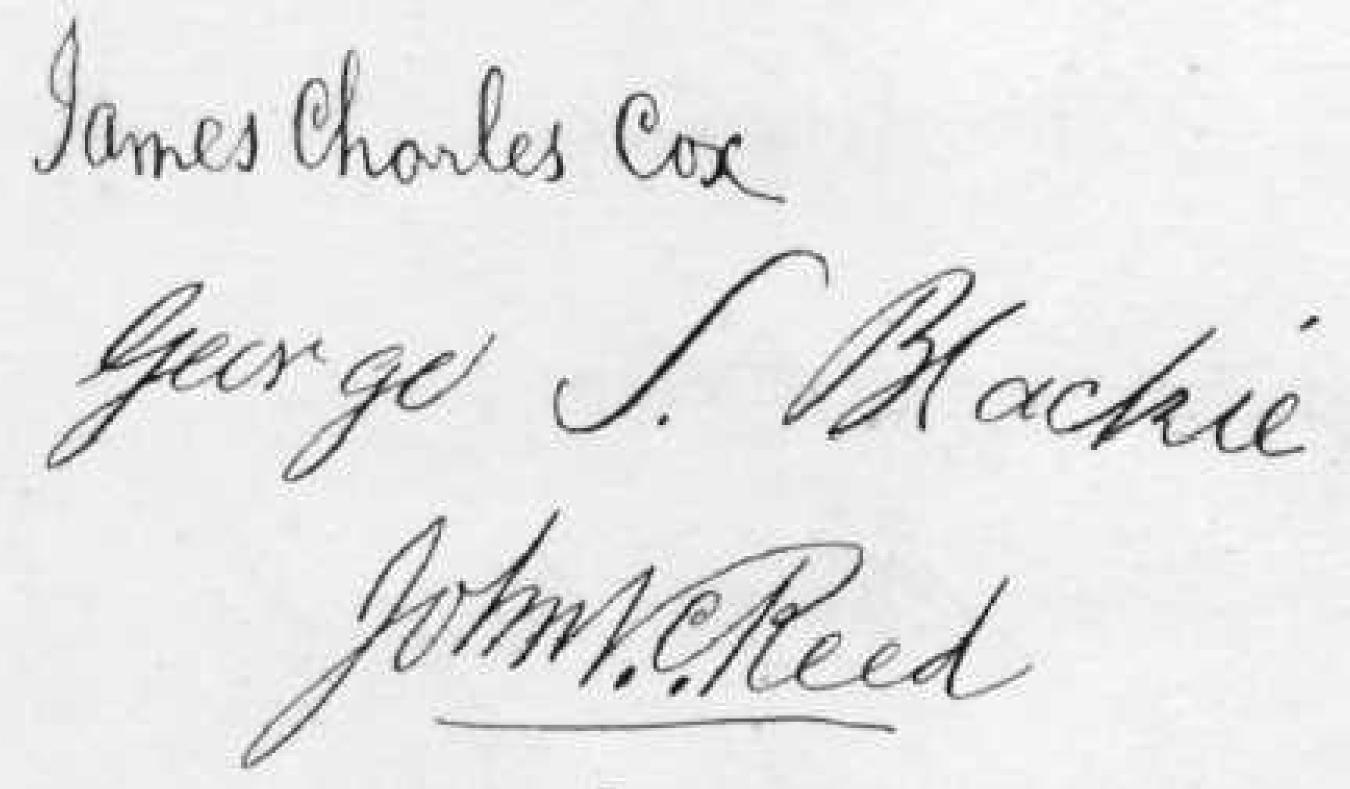 James Charles Cox
George S. Blackie
John V. C. Reed